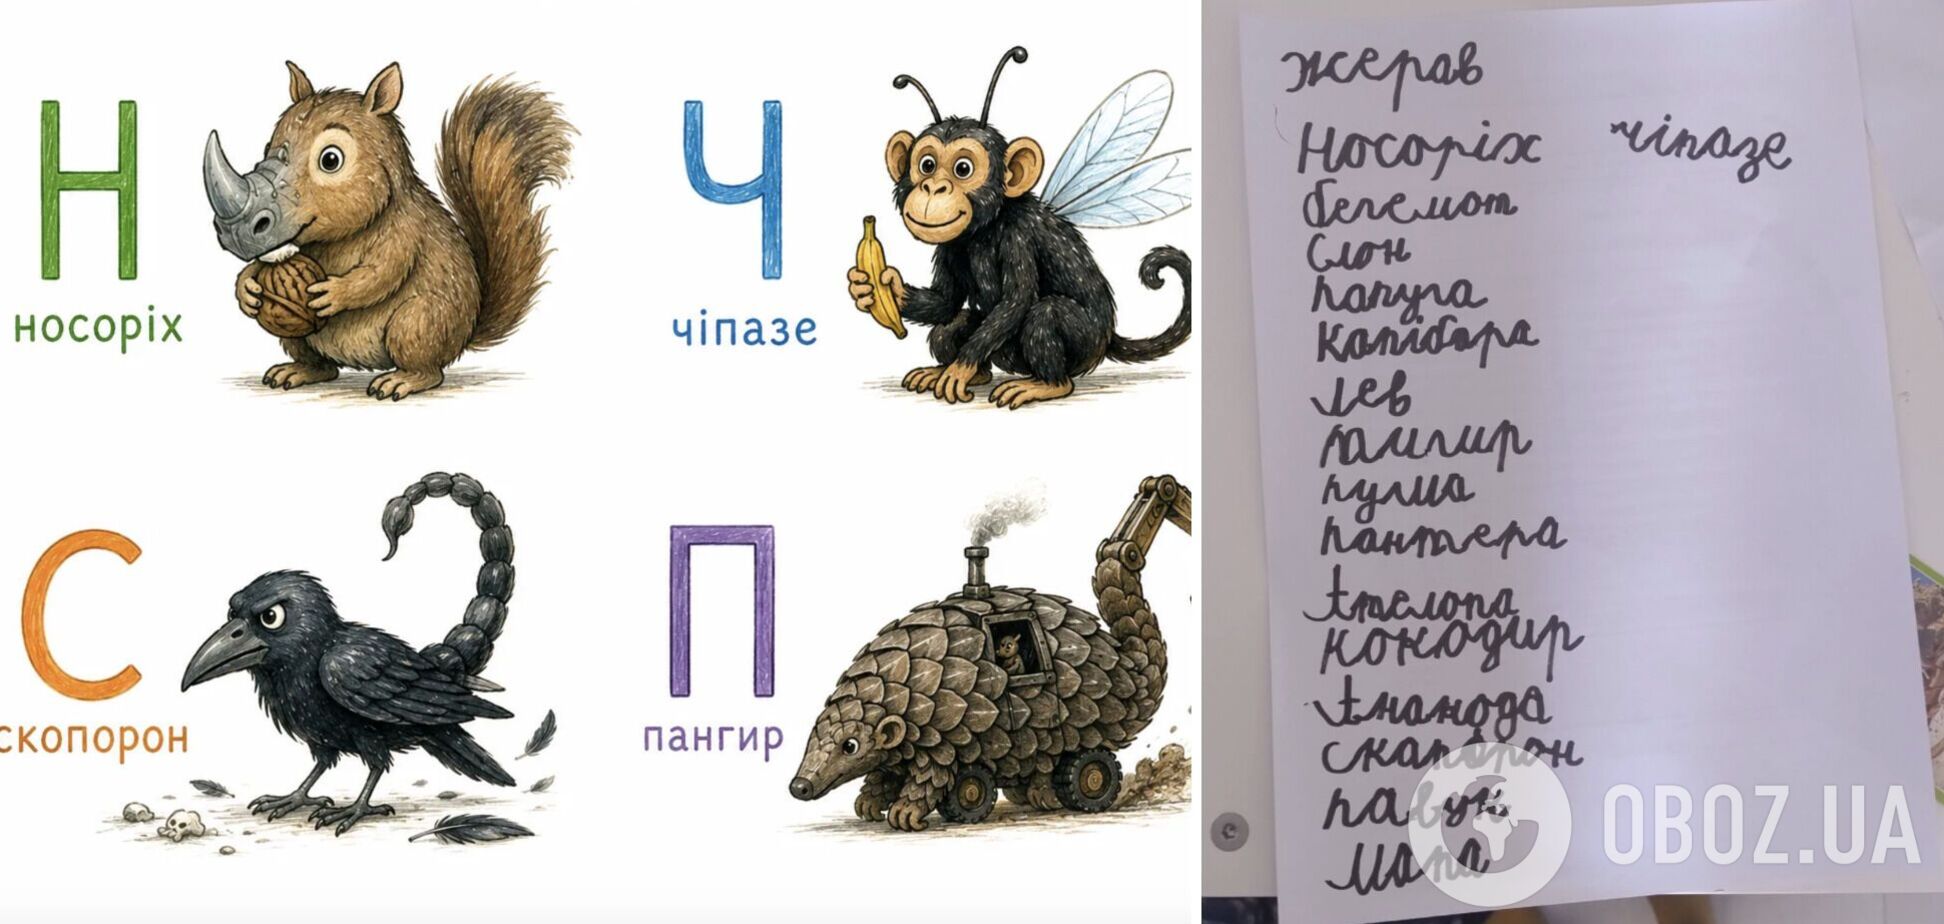 Н
носоріх
Ч
чіпазе
С
скопорон
П
пангир
жерав
Носоріх чіпазе
бегемот
Слон
папуга
капібара
лев
памгир
пулма
пантера
Ателопа
кокодир
Анаnода
скапорон
павук
мапа
OBOZ.UA